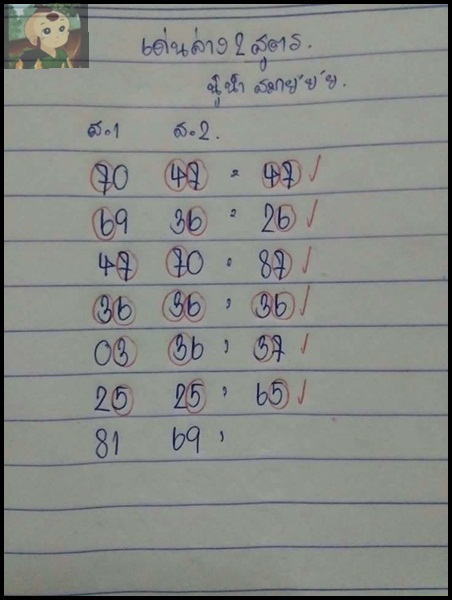 เด่นล่าง 2 สูตร.
ส.1 ส.2.
70 47 = 47 ✓
69 36 = 26 ✓
47 70 = 87 ✓
36 36 = 36 ✓
03 36 = 37 ✓
25 25 = 65 ✓
81 69 =